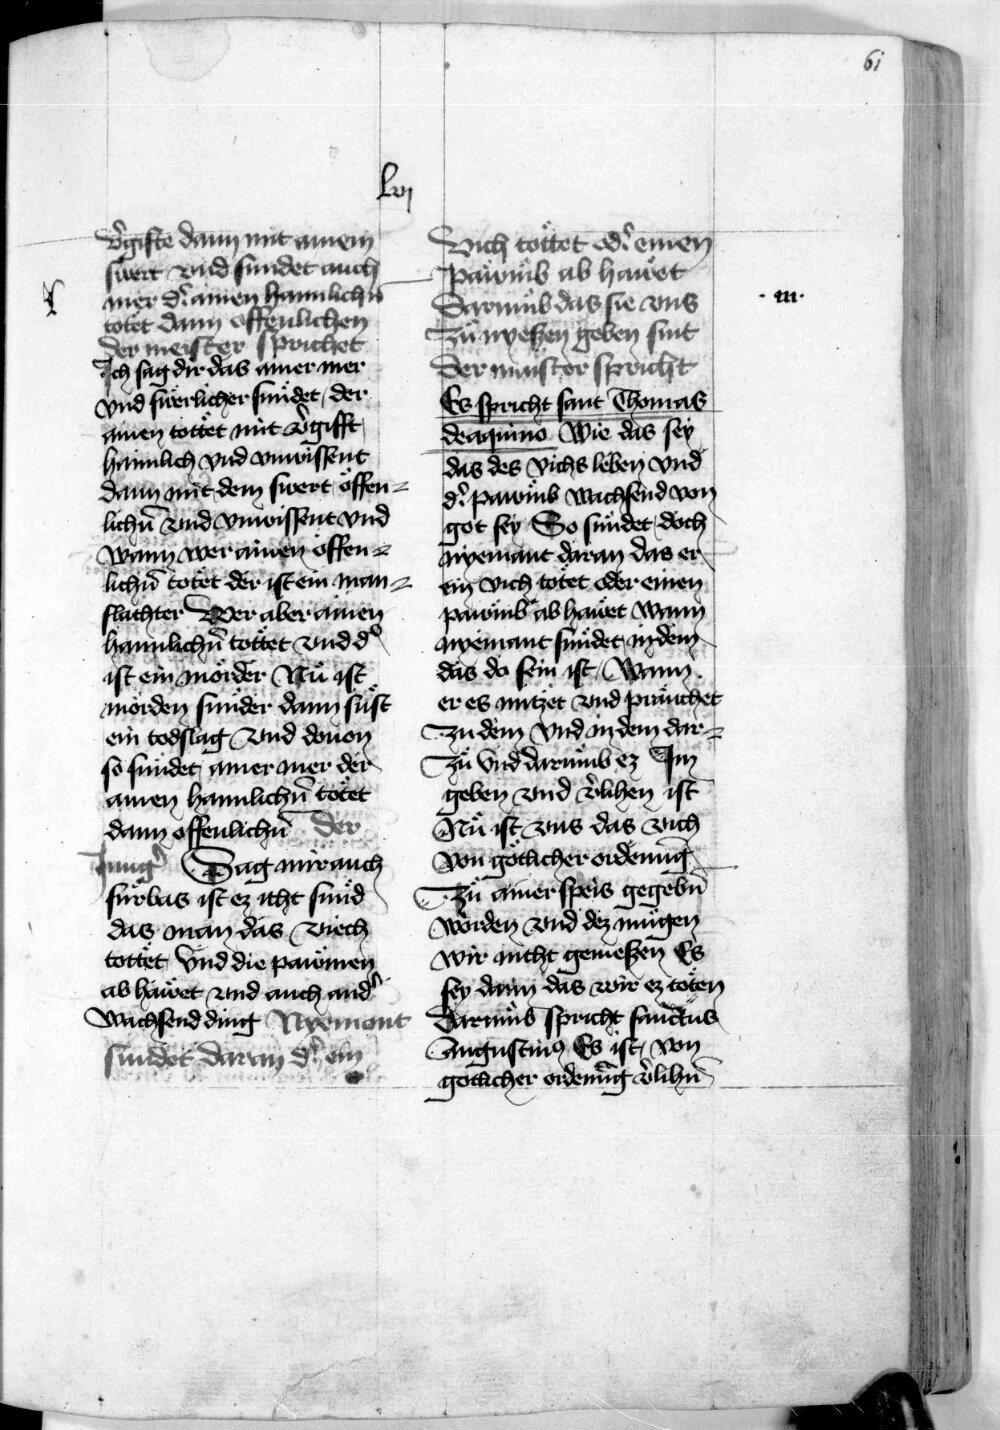 61
lvj
v̾gifte dann mit ainem
swert vnd sundet auch
mer d̾ ainen haimlichn̄
totet dann offenlichen
der meister sprichet
Ich sag dir das ainer mer
vnd swerlicher sundet der
ainen tottet mit v̾gifft
haimlich vnd vnwissent
dann mit dem swert offen=
lichn̄ vnd vnwissent vnd
wann wer ainen offen=
lichn̄ totet der ist ein man=
slachter Wer aber ainen
haimlichn̄ tottet vnd d̾
ist ein morder Nů ist
morden sunder dann sůst
ein todslag Vnd douon
so sundet ainer mer der
ainen haimlichn̄ totet
dann offenlichn̄ Der
Jung̾ Sag mir auch
fůrbas ist ez icht sund
das man das viech
tottet Vnd die pawmen
ab hawet vnd auch and̾
wachsend ding Nyemont
sundet daran d̾ ein
Vich tottet od̾ einen
pawmb ab hawet
Darumb das sie vns
Zů nyeßen geben sint
Der maister spricht
·m·
Es spricht sant Thomas
deaquino Wie das sey
das des vichs leben vnd
d̾ pawmb wachsend von
got sey So sundet doch
nyemant daran das er
ein vich totet oder einen
pawmb ab hawet wann
nyemant sundet in dem
das do sein ist Wann
er es nutzet vnd prauchet
Zu dem vnd in dem dar=
Zů vnd darumb ez Im
geben vnd v̾lihen ist
Nů ist vns das vich
von gotlicher ordenung
Zů ainer speis gegebn̄
worden vnd dez mugen
wir nicht genießen Es
sey dann das wir ez toten
Darumb spricht sanctus
Augustin9 Es ist von
gotlicher ordenung v̾lihn̄